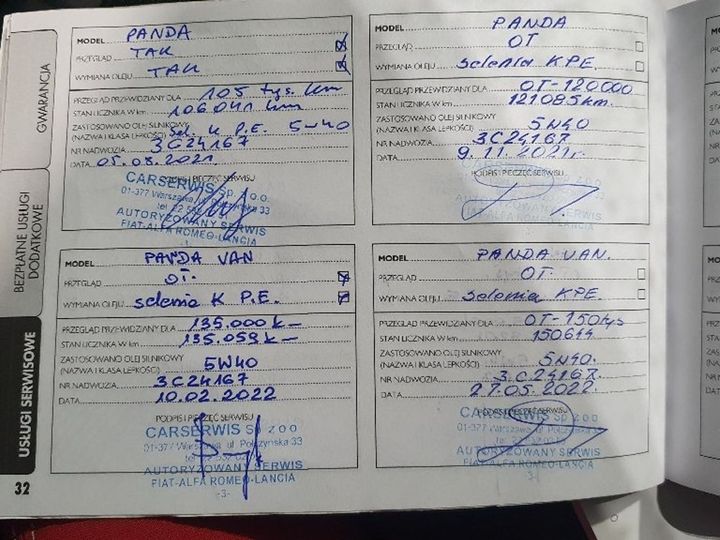 GWARANCJA
BEZPŁATNE USŁUGI
DODATKOWE
USŁUGI SERWISOWE
32
MODEL PANDA
PRZEGLĄD TAK
WYMIANA OLEJU TAK
PRZEGLĄD PRZEWIDZIANY DLA 105 tys. km
STAN LICZNIKA W km 106041 km
ZASTOSOWANO OLEJ SILNIKOWY
(NAZWA I KLASA LEPKOŚCI) Sel. K P.E. 5W40
NR NADWOZIA 3C24167
DATA 05.08.2021
PODPIS I PIECZĘĆ SERWISU
CARSERWIS Sp. z o.o.
01-377 Warszawa, ul. Połczyńska 33
AUTORYZOWANY SERWIS
FIAT-ALFA ROMEO-LANCIA
MODEL PANDA
PRZEGLĄD OT
WYMIANA OLEJU selenia KPE.
PRZEGLĄD PRZEWIDZIANY DLA OT-120000
STAN LICZNIKA W km 121085km.
ZASTOSOWANO OLEJ SILNIKOWY
(NAZWA I KLASA LEPKOŚCI) 5W40
NR NADWOZIA 3C24167
DATA 9.11.2021r.
PODPIS I PIECZĘĆ SERWISU
CARSERWIS Sp. z o.o.
01-377 Warszawa, ul. Połczyńska 33
AUTORYZOWANY SERWIS
FIAT-ALFA ROMEO-LANCIA
MODEL PANDA VAN
PRZEGLĄD OT.
WYMIANA OLEJU selenia K P.E.
PRZEGLĄD PRZEWIDZIANY DLA 135.000 k—
STAN LICZNIKA W km 135.059 k—
ZASTOSOWANO OLEJ SILNIKOWY
(NAZWA I KLASA LEPKOŚCI) 5W40
NR NADWOZIA 3C24167
DATA 10.02.2022
PODPIS I PIECZĘĆ SERWISU
CARSERWIS Sp z o o
01-377 Warszawa ul Połczyńska 33
AUTORYZOWANY SERWIS
FIAT-ALFA ROMEO-LANCIA
-3-
MODEL PANDA VAN.
PRZEGLĄD OT.
WYMIANA OLEJU selenia KPE.
PRZEGLĄD PRZEWIDZIANY DLA OT-150tys
STAN LICZNIKA W km 150644
ZASTOSOWANO OLEJ SILNIKOWY
(NAZWA I KLASA LEPKOŚCI) 5W40.
NR NADWOZIA 3.C24167.
DATA 27.05.2022
PODPIS I PIECZĘĆ SERWISU
CARSERWIS Sp z o o
01-377 Warszawa ul Połczyńska 33
AUTORYZOWANY SERWIS
FIAT-ALFA ROMEO-LANCIA